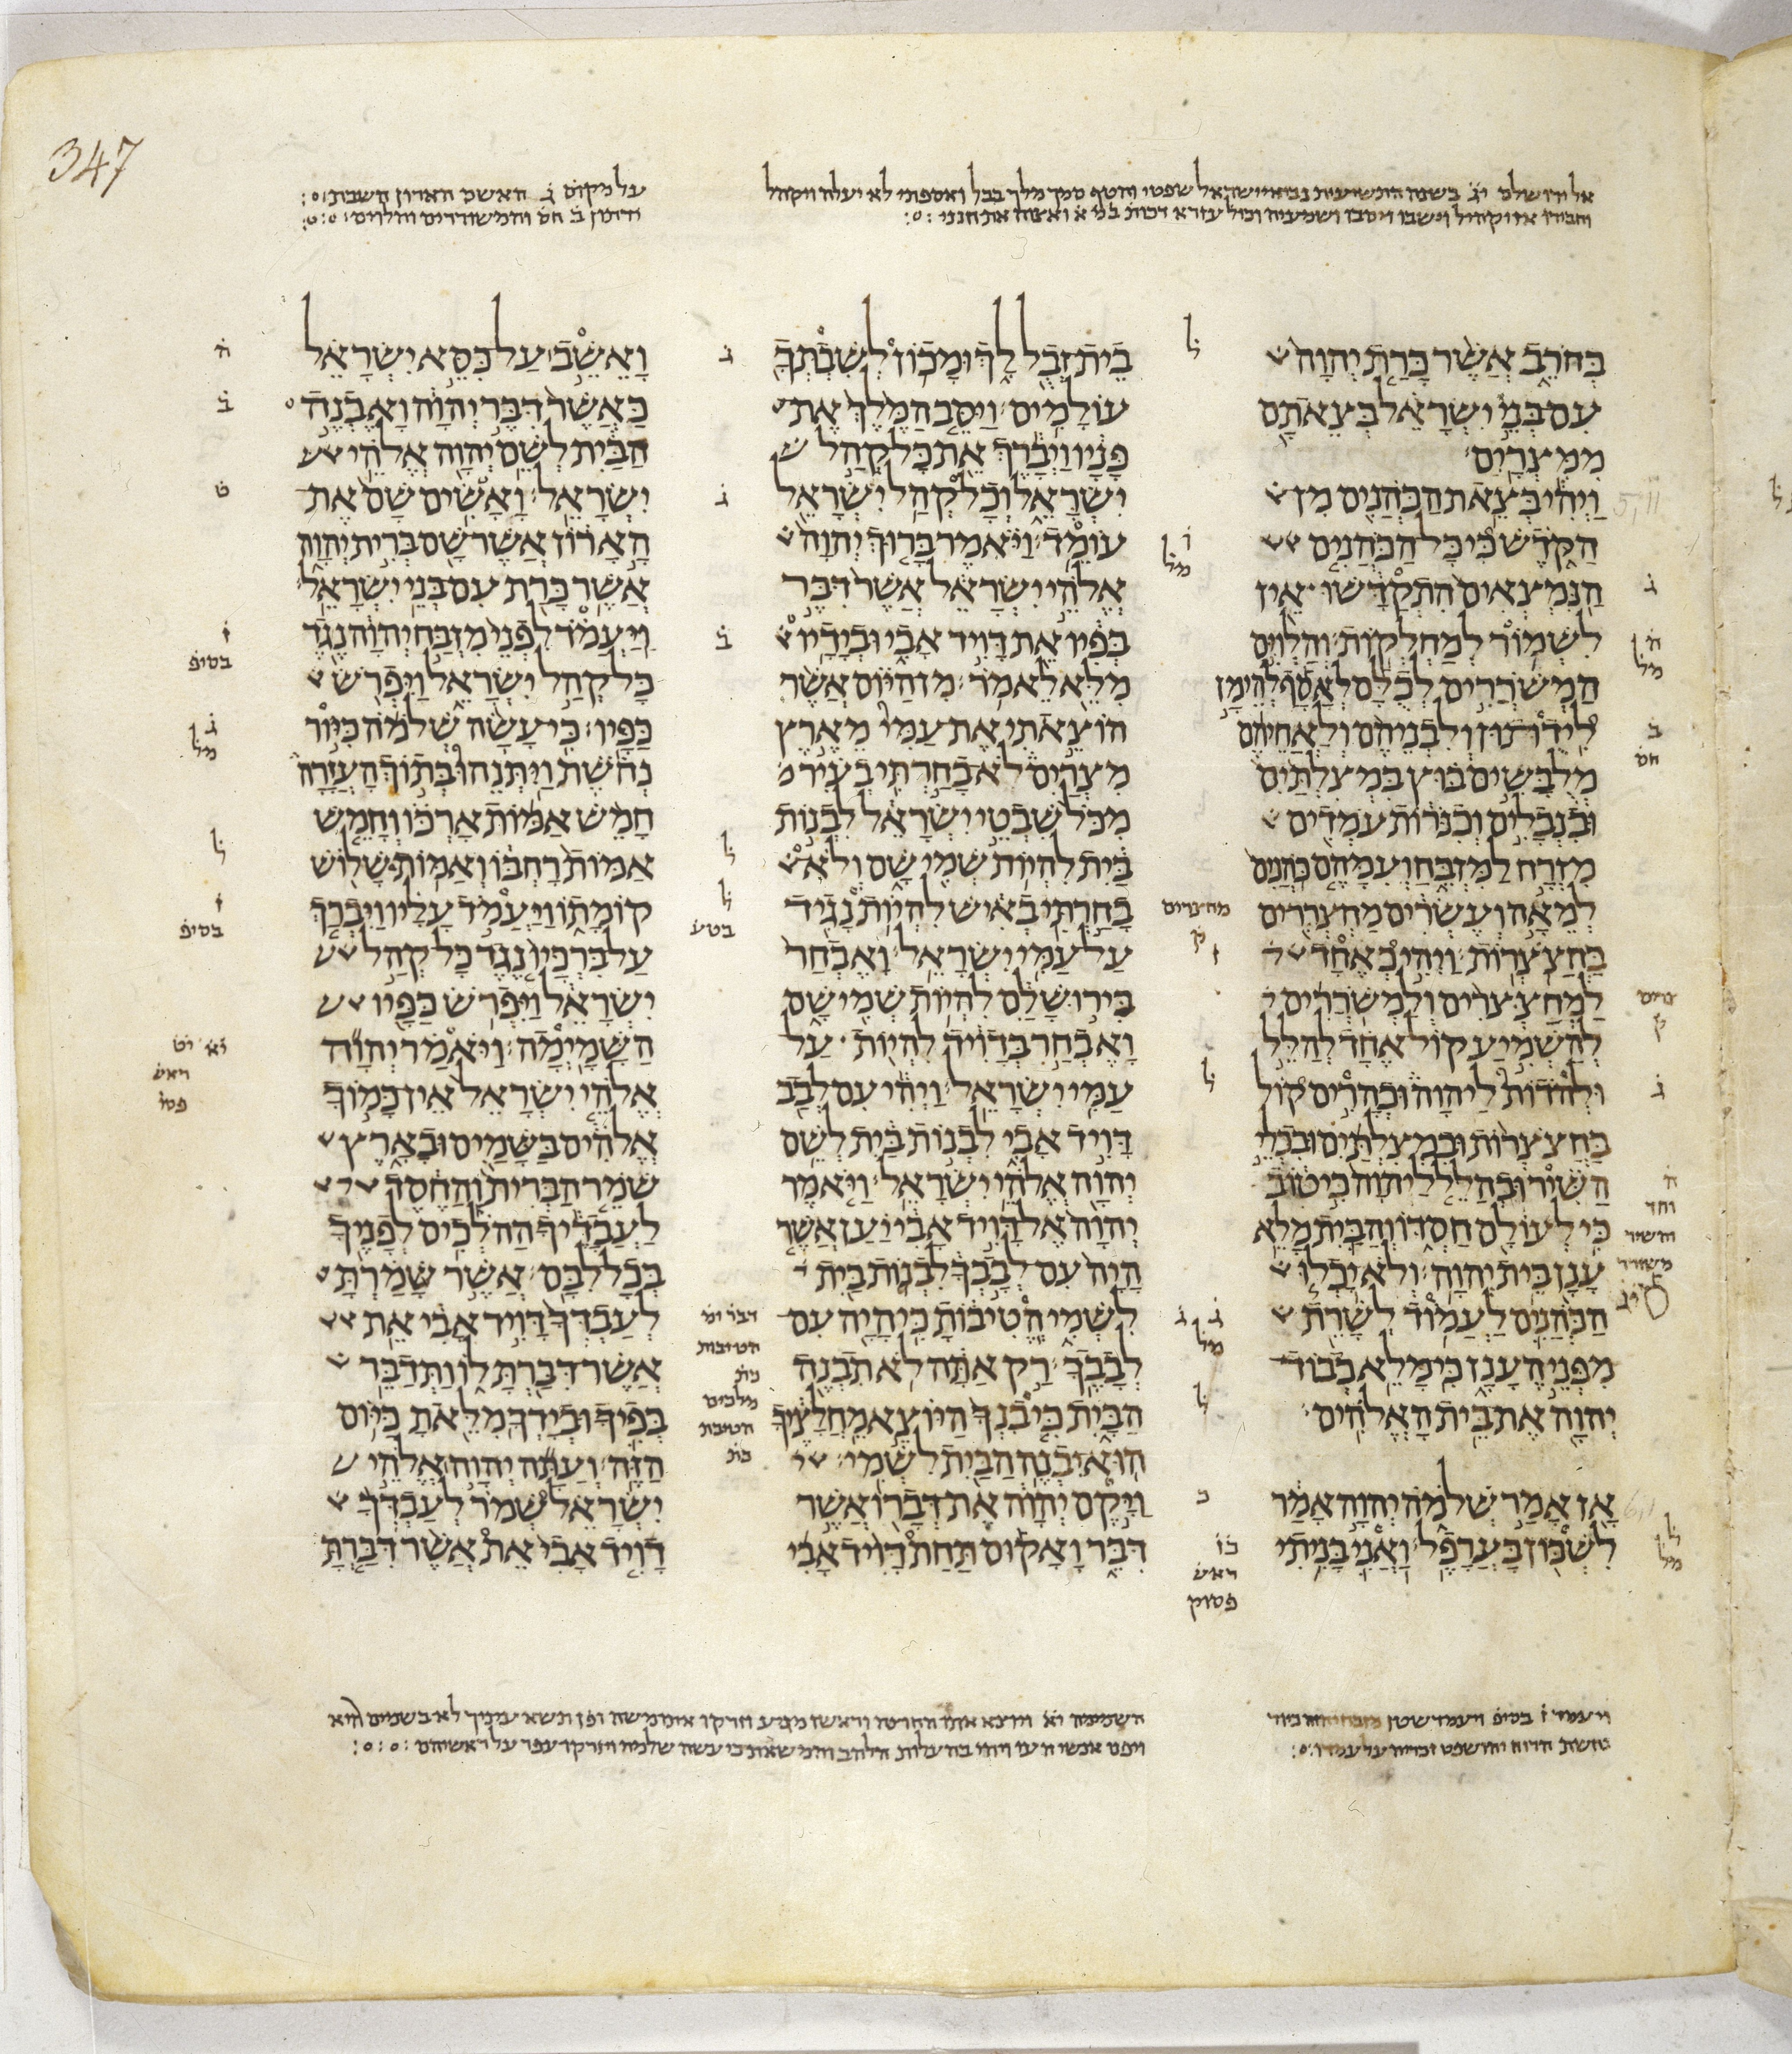 347
אל ירושלם יג בשנה התשיעית נביאי ישראל שפטי ותטף סמך מלך בבל ואספתי לא יעלה ויקהל
על מקום ג האשם הארון השבת
וידותון ב חס והמשוררים והלוים
בחרב אשר כרת יהוה
עם בני ישראל בצאתם
ממצרים
ויהי בצאת הכהנים מן
הקדש כי כל הכהנים
הנמצאים התקדשו אין
לשמור למחלקות והלוים
המשררים לכלם לאסף להימן
לידותון ולבניהם ולאחיהם
מלבשים בוץ במצלתים
ובנבלים וכנרות עמדים
מזרח למזבח ועמהם כהנים
למאה ועשרים מחצררים
בחצצרות ויהי כאחד
למחצצרים ולמשררים
להשמיע קול אחד להלל
ולהדות ליהוה וכהרים קול
בחצצרות ובמצלתים ובכלי
השיר ובהלל ליהוה כי טוב
כי לעולם חסדו והבית מלא
ענן בית יהוה ולא יכלו
הכהנים לעמוד לשרת
מפני הענן כי מלא כבוד
יהוה את בית האלהים
אז אמר שלמה יהוה אמר
לשכון בערפל ואני בניתי
בית זבל לך ומכון לשבתך
עולמים ויסב המלך את
פניו ויברך את כל קהל
ישראל וכל קהל ישראל
עומד ויאמר ברוך יהוה
אלהי ישראל אשר דבר
בפיו את דויד אבי ובידיו
מלא לאמר מן היום אשר
הוצאתי את עמי מארץ
מצרים לא בחרתי בעיר
מכל שבטי ישראל לבנות
בית להיות שמי שם ולא
בחרתי באיש להיות נגיד
על עמי ישראל ואבחר
בירושלם להיות שמי שם
ואבחר בדויד להיות על
עמי ישראל ויהי עם לבב
דויד אבי לבנות בית לשם
יהוה אלהי ישראל ויאמר
יהוה אל דויד אבי יען אשר
היה עם לבבך לבנות בית
לשמי הטיבות כי היה עם
לבבך רק אתה לא תבנה
הבית כי בנך היוצא מחלציך
הוא יבנה הבית לשמי
ויקם יהוה את דברו אשר
דבר ואקום תחת דויד אבי
ואשב על כסא ישראל
כאשר דבר יהוה ואבנה
הבית לשם יהוה אלהי
ישראל ואשים שם את
הארון אשר שם ברית יהוה
אשר כרת עם בני ישראל
ויעמד לפני מזבח יהוה נגד
כל קהל ישראל ויפרש
כפיו כי עשה שלמה כיור
נחשת ויתנהו בתוך העזרה
חמש אמות ארכו וחמש
אמות רחבו ואמות שלוש
קומתו ויעמד עליו ויברך
על ברכיו נגד כל קהל
ישראל ויפרש כפיו
השמימה ויאמר יהוה
אלהי ישראל אין כמוך
אלהים בשמים ובארץ
שמר הברית והחסד
לעבדיך ההלכים לפניך
בכל לבם אשר שמרת
לעבדך דויד אבי את
אשר דברת לו ותדבר
בפיך ובידך מלאת כיום
הזה ועתה יהוה אלהי
ישראל שמר לעבדך
דויד אבי את אשר דברת